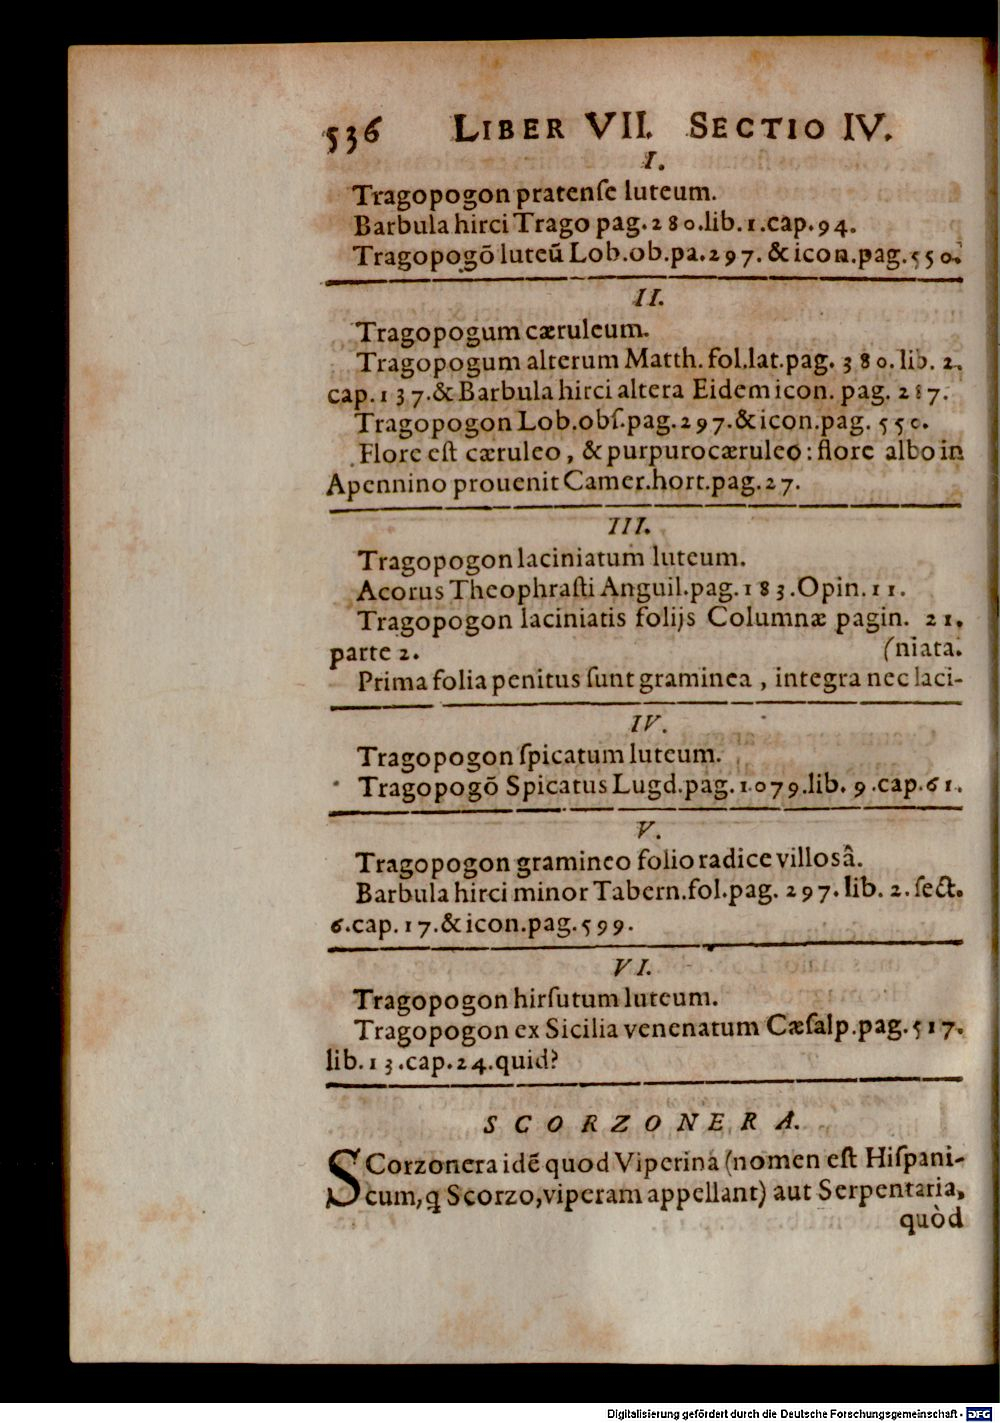 536 LIBER VII. SECTIO IV.
I.
Tragopogon pratenſe luteum.
Barbula hirci Trago pag. 280. lib. 1. cap. 94.
Tragopogō luteū Lob. ob. pa. 297. & icon. pag. 550.
II.
Tragopogum cæruleum.
Tragopogum alterum Matth. fol. lat. pag. 380. lib. 2.
cap. 137. & Barbula hirci altera Eidem icon. pag. 287.
Tragopogon Lob. obſ. pag. 297. & icon. pag. 550.
Flore eſt cæruleo, & purpurocæruleo: flore albo in
Apennino prouenit Camer. hort. pag. 27.
III.
Tragopogon laciniatum luteum.
Acorus Theophraſti Anguil. pag. 183. Opin. 11.
Tragopogon laciniatis folijs Columnæ pagin. 21.
parte 2. (niata.
Prima folia penitus ſunt graminea, integra nec laci-
IV.
Tragopogon ſpicatum luteum.
Tragopogō Spicatus Lugd. pag. 1079. lib. 9. cap. 61.
V.
Tragopogon gramineo folio radice villosâ.
Barbula hirci minor Tabern. fol. pag. 297. lib. 2. ſect.
6. cap. 17. & icon. pag. 599.
VI.
Tragopogon hirſutum luteum.
Tragopogon ex Sicilia venenatum Cæſalp. pag. 517.
lib. 13. cap. 24. quid?
SCORZONERA.
SCorzonera idē quod Viperina (nomen eſt Hiſpani-
cum, q̄ Scorzo, viperam appellant) aut Serpentaria,
quòd
Digitalisierung gefördert durch die Deutsche Forschungsgemeinschaft - DFG